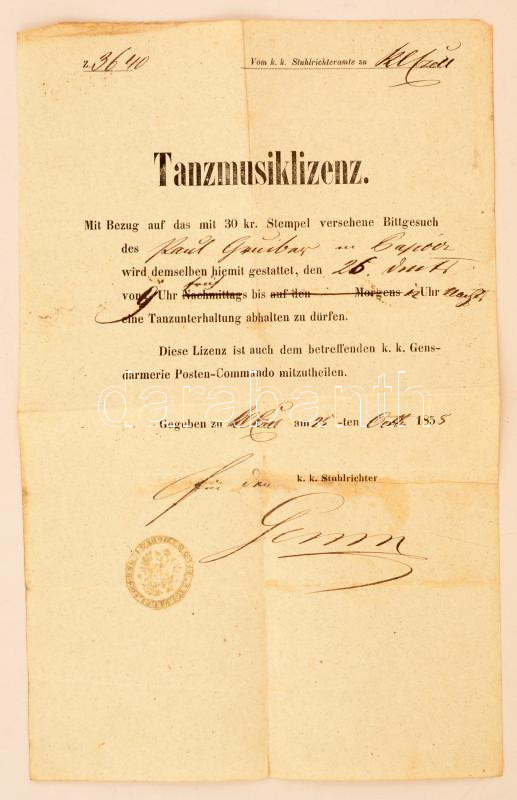 z. 3640 Vom k. k. Stuhlrichteramte zu
Tanzmusiklizenz.
Mit Bezug auf das mit 30 kr. Stempel versehene Bittgesuch
des Paul Gruiber in
wird demselben hiemit gestattet, den 26. dmts
von 9 Uhr früh Nachmittags bis auf den Morgens 12 Uhr Nachts
eine Tanzunterhaltung abhalten zu dürfen.
Diese Lizenz ist auch dem betreffenden k. k. Gens-
darmerie Posten-Commando mitzutheilen.
darabanth
Gegeben zu am 25-ten Octb. 1858
für den k. k. Stuhlrichter